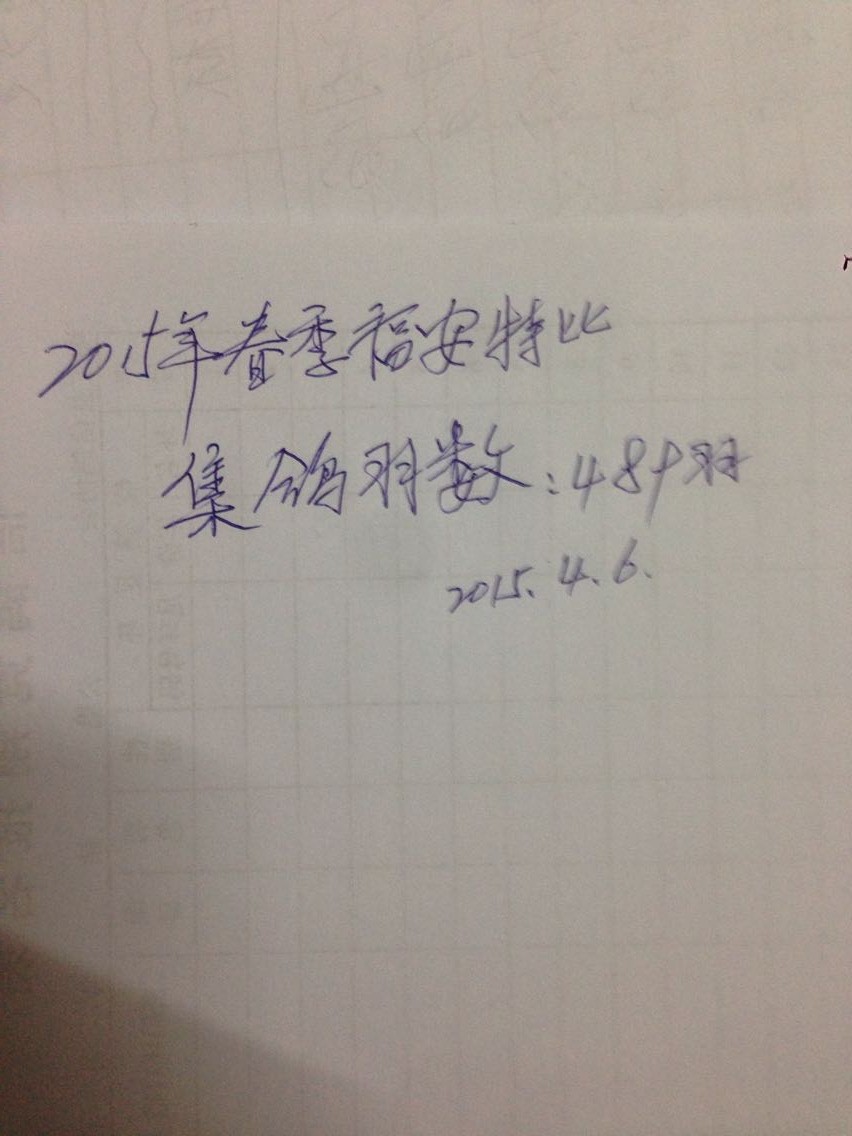 2015年春季福安特比
集鸽羽数:489羽
2015.4.6.